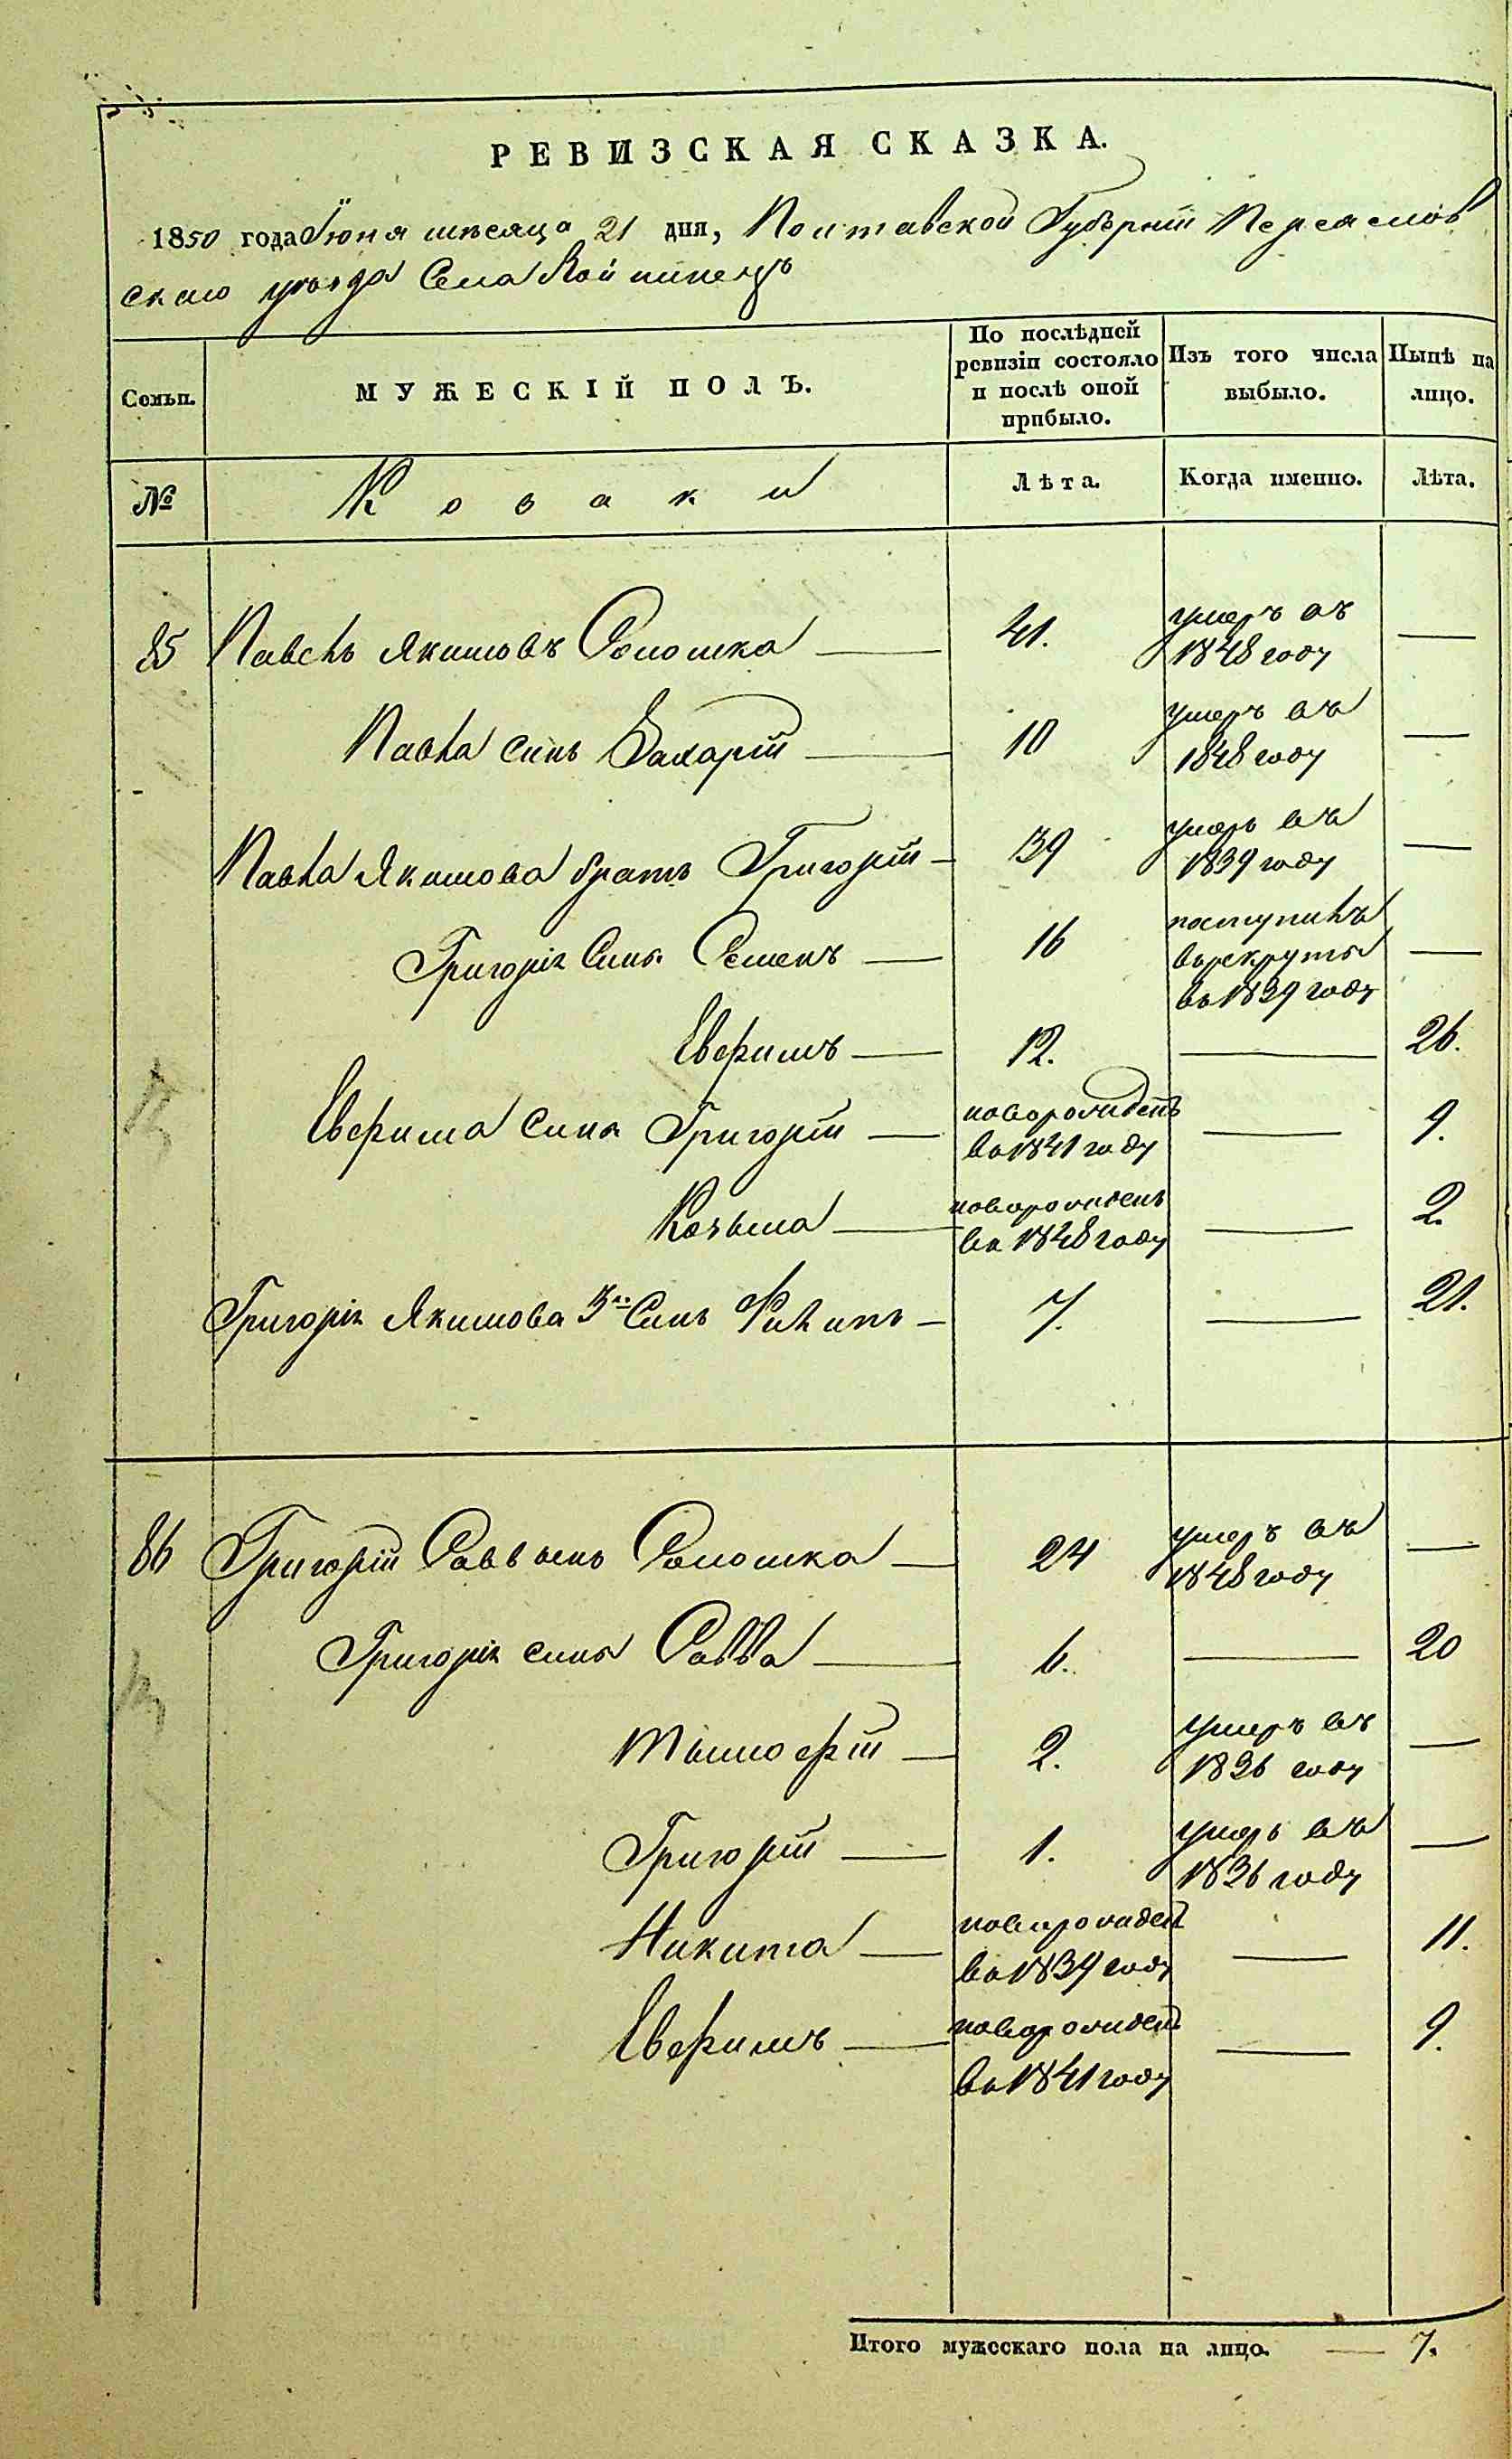 РЕВИЗСКАЯ СКАЗКА.
1850 года Іюня месяца 21 дня, Полтавской Губерніи Переяслов
скаго уезда Села Койлинецъ
Семьи.
МУЖЕСКІЙ ПОЛЪ.
По послѣдней
ревизіи состояло
и послѣ оной
прибыло.
Изъ того числа
выбыло.
Нынѣ на
лицо.
№
Козаки
Лѣта.
Когда именно.
Лѣта.
85 Павелъ Якимовъ Сомошка 41. умеръ въ
1848 году
Павла синъ Захарій 10 умеръ въ
1848 году
Павла Якимова братъ Григорій 39 умеръ въ
1839 году
Григорія Сины Семенъ 16 поступилъ
в рекруты
в 1839 году
Евфимъ 12. 26.
Евфима сины Григорій новорожденъ
в 1841 году 9.
Козьма новорожденъ
в 1848 году 2.
Григорія Якимова 3й Синъ Филипъ 7. 21.
86 Григорій Саввинъ Сомошка 24 умеръ въ
1848 году
Григорія сины Савва 6. 20
Тымофій 2. умеръ въ
1836 году
Григорій 1. умеръ въ
1836 году
Никита новорожден
в 1839 году 11.
Евфимъ новорожден
в 1841 году 9.
Итого мужескаго пола на лицо. 7.